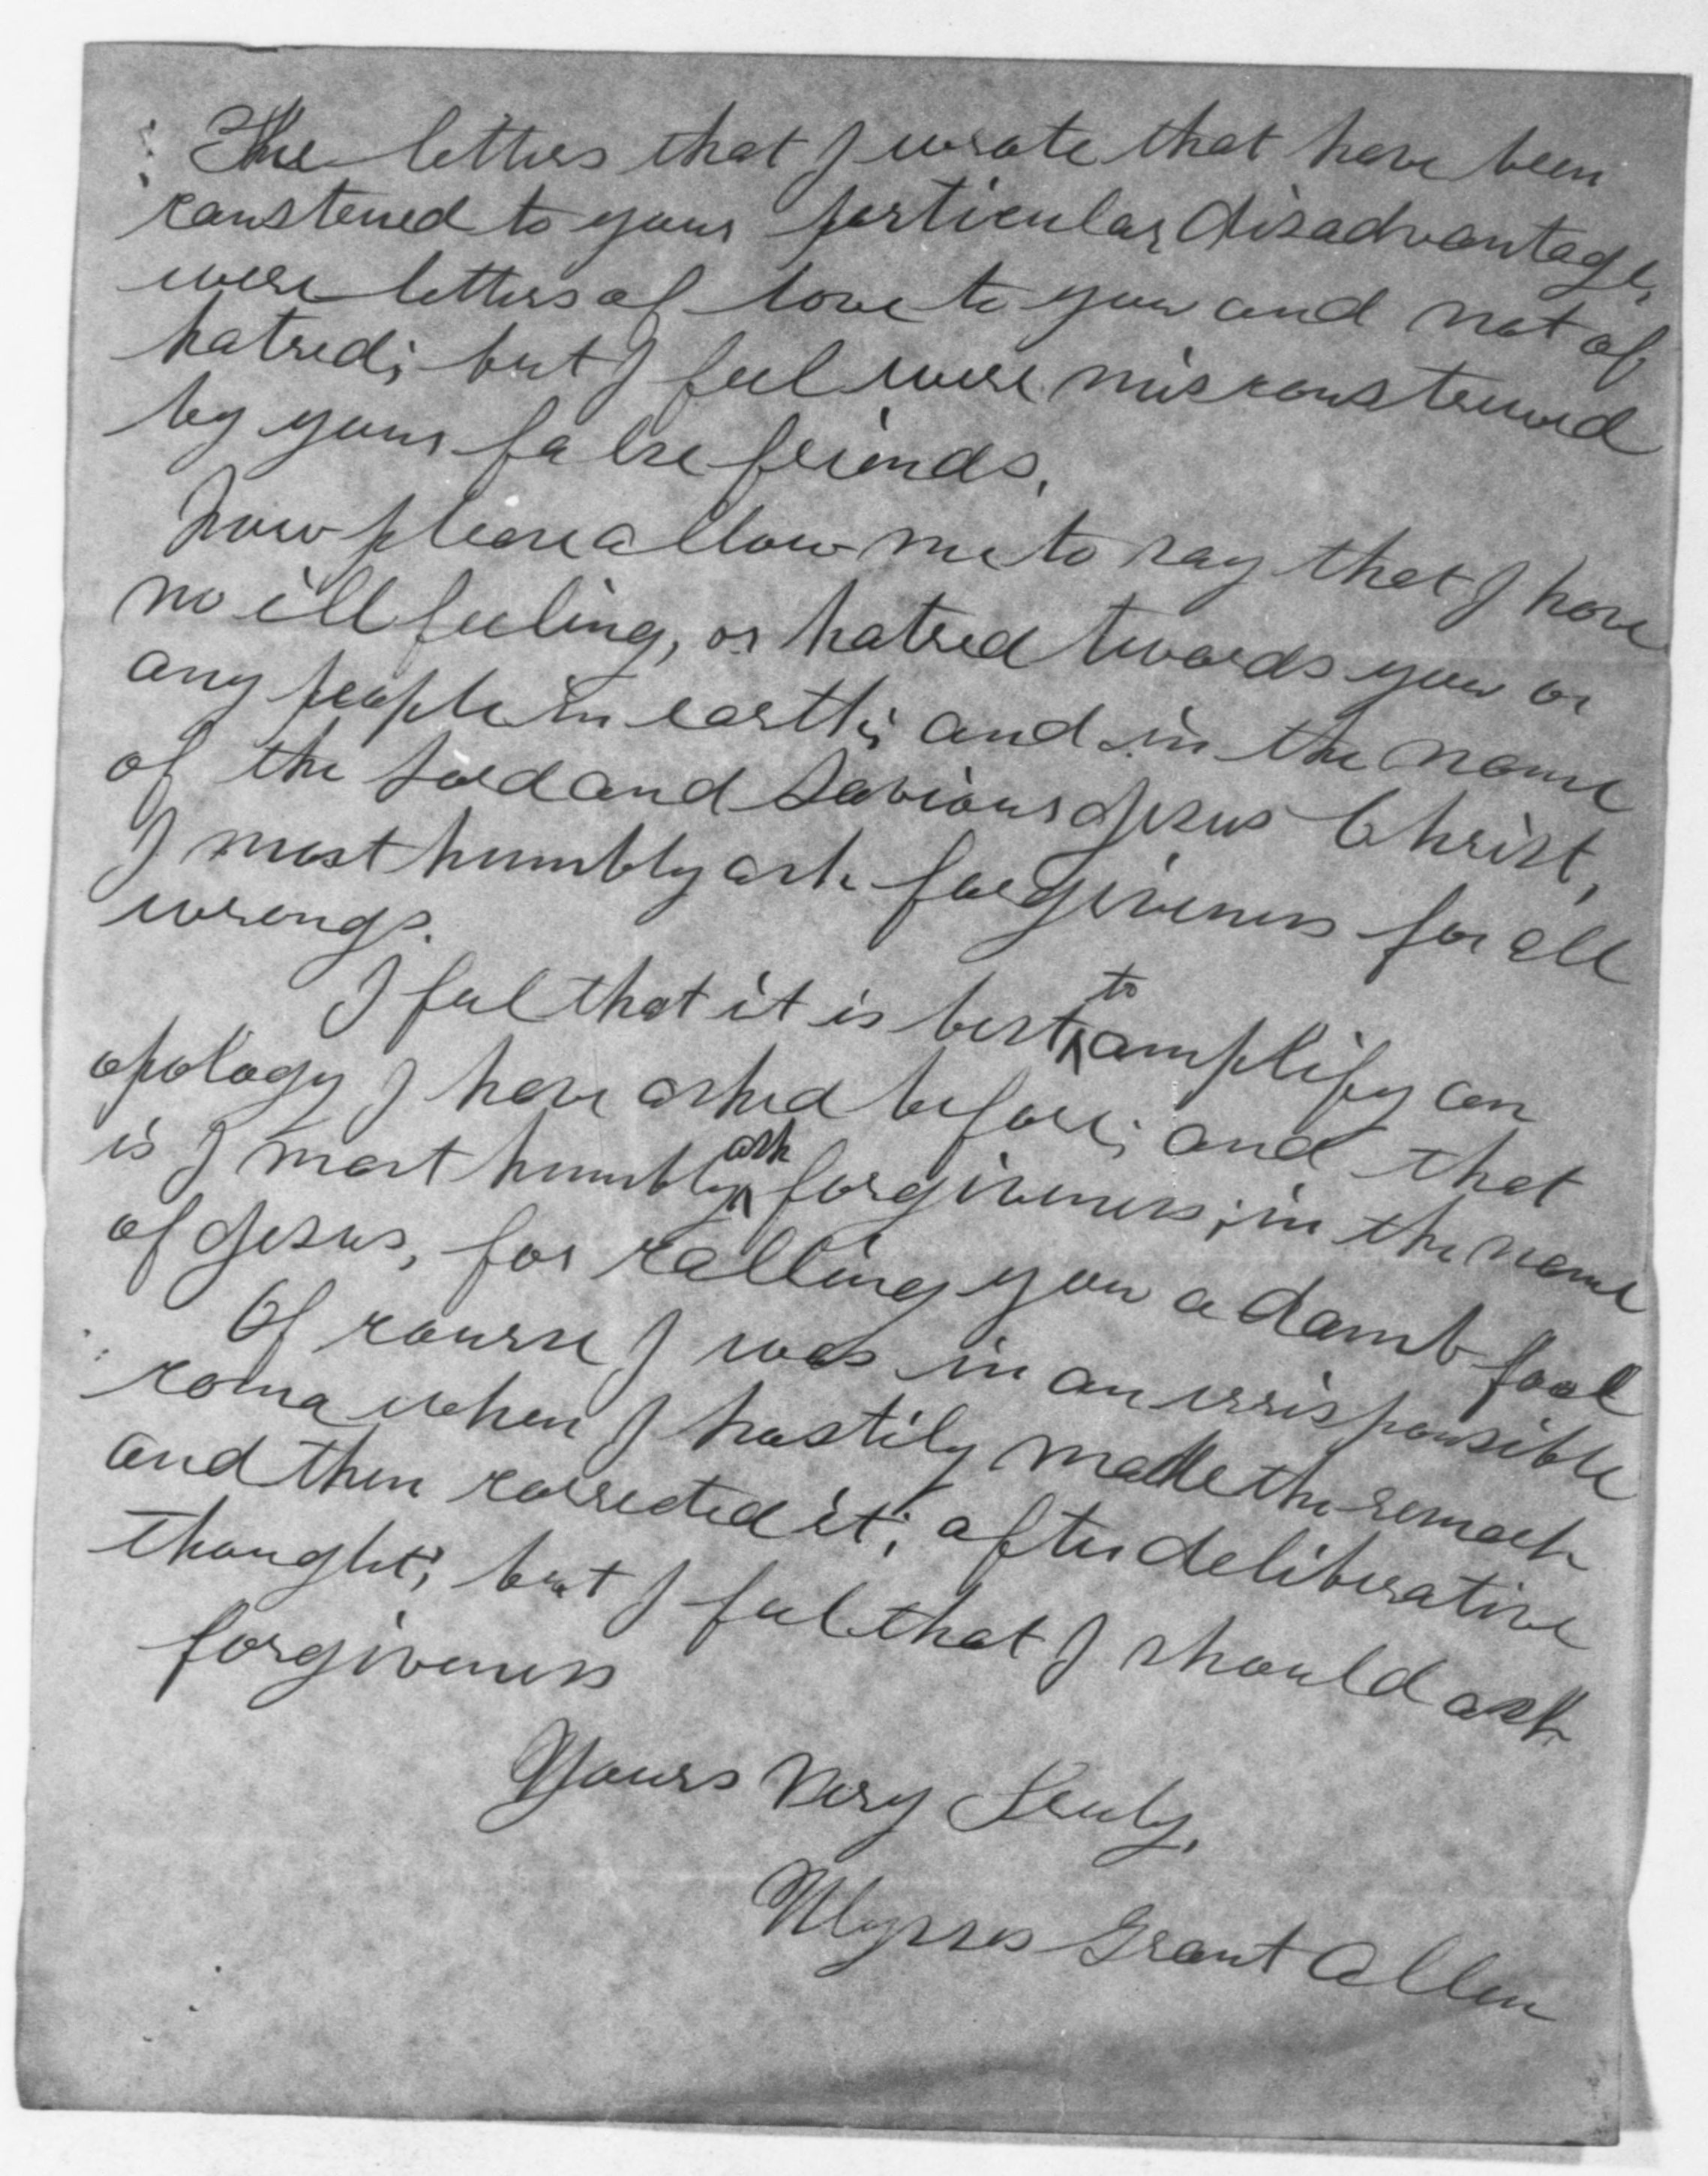 The letters that I wrote that have been
construed to your particular disadvantage,
were letters of love to you and not of
hatred; but I feel were misconstrued
by your false friends.
Now please allow me to say that I have
no ill feeling, or hatred twoards you or
any people in earth; and in the name
of the Lord and Saviour Jesus Christ,
I most humbly ask forgiveness for all
wrongs.
I feel that it is best to amplify an
apology I have asked before; and that
is I most humbly ask forgiveness; in the name
of Jesus, for calling you a damb fool
Of course I was in an irrisponsible
coma when I hastily made the remark
and then corrected it; after deliberative
thought; but I feel that I should ask
forgiveness
Yours Very Truly,
Ulysses Grant Allen